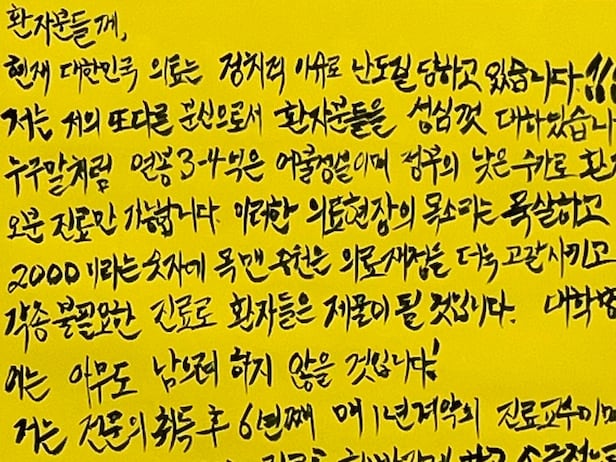 환자분들께,
현재 대한민국 의료는 정치적 이슈로 난도질 당하고 있습니다.!!!
저는 저의 또다른 분신으로서 환자분들을 성심껏 대하였습니
누구말처럼 연봉 3-4억은 어불성설이며 정부의 낮은 수가로 환
오분 진료만 가능합니다. 이러한 의료현장의 목소리는 묵살하고
2000이라는 숫자에 목맨 증원은 의료재정을 더욱 고갈시키고
각종 불필요한 진료로 환자들은 제물이 될 것입니다. 대학병
에는 아무도 남으려 하지 않을 것입니다!
저는 전문의 취득 후 6년째 매 1년 계약의 진료교수이며